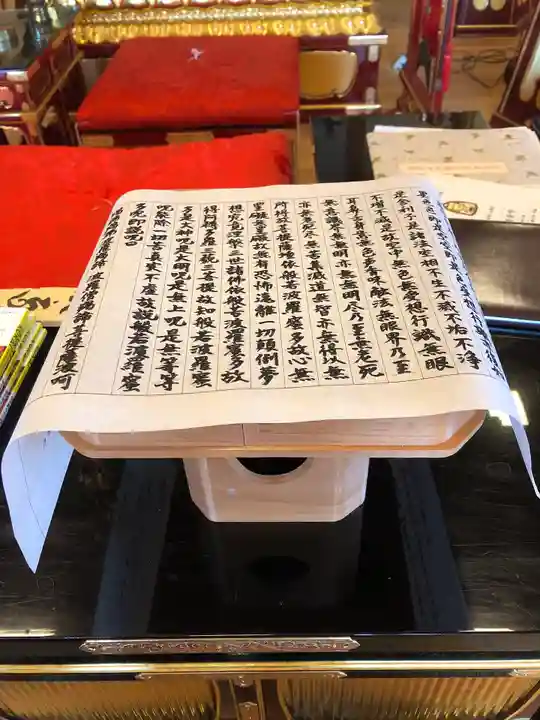 是舍利子是諸法空相不生不滅不垢不浄
不増不減是故空中無色無受想行識無眼
耳鼻舌身意無色聲香味触法無眼界乃至
無意識界無無明亦無無明尽乃至無老死
亦無老死尽無苦集滅道無智亦無得以無
所得故菩提薩埵依般若波羅蜜多故心無
罣礙無罣礙故無有恐怖遠離一切顛倒夢
想究竟涅槃三世諸佛依般若波羅蜜多故
得阿耨多羅三藐三菩提故知般若波羅蜜
多是大神呪是大明呪是無上呪是無等等
呪能除一切苦真実不虚故説般若波羅蜜
多呪即説呪曰